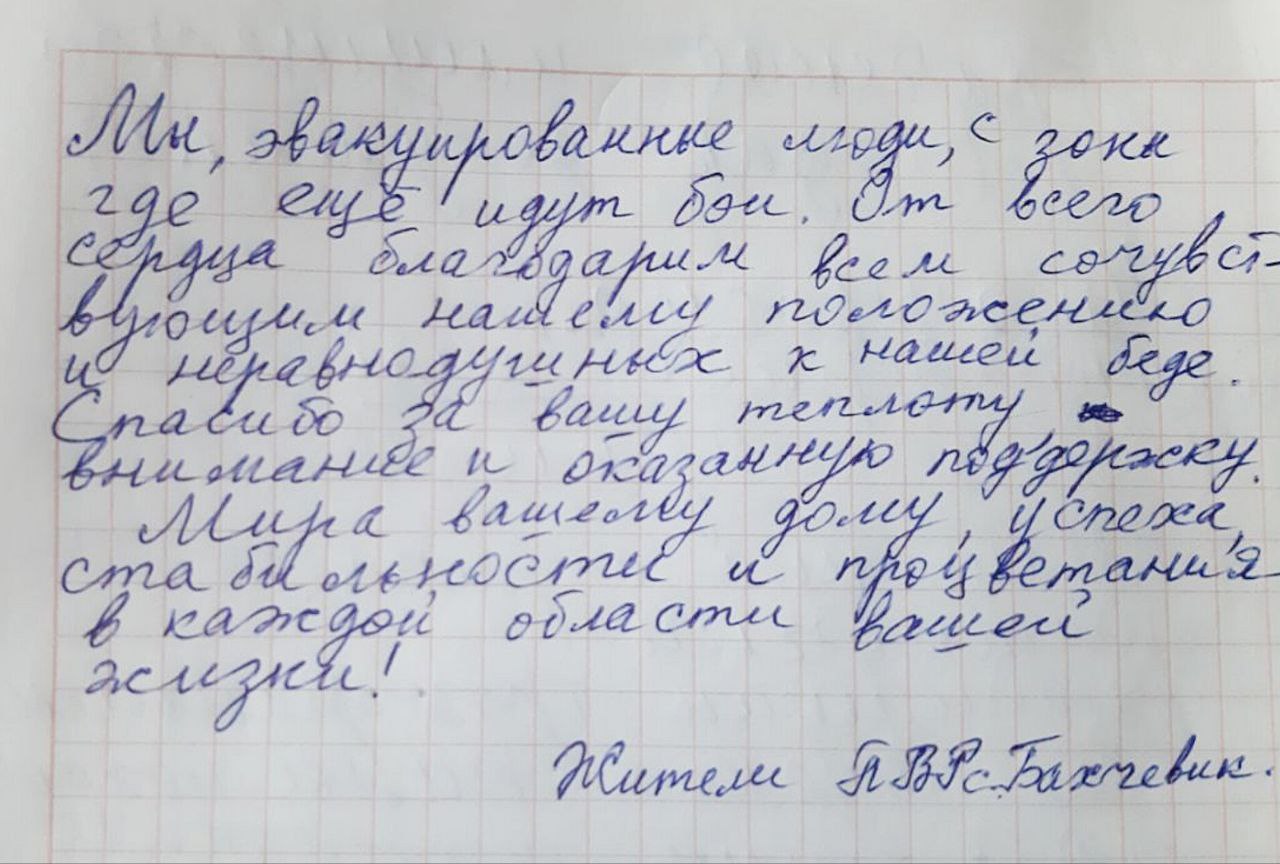 Мы, эвакуированные люди, с зоны
где ещё идут бои. От всего
сердца благодарим всем сочувст-
вующим нашему положению
и неравнодушных к нашей беде.
Спасибо за вашу теплоту,
внимание и оказанную поддержку.
Мира вашему дому, успеха,
стабильности и процветания
в каждой области вашей
жизни!
Жители ПВР с. Бахчевик.